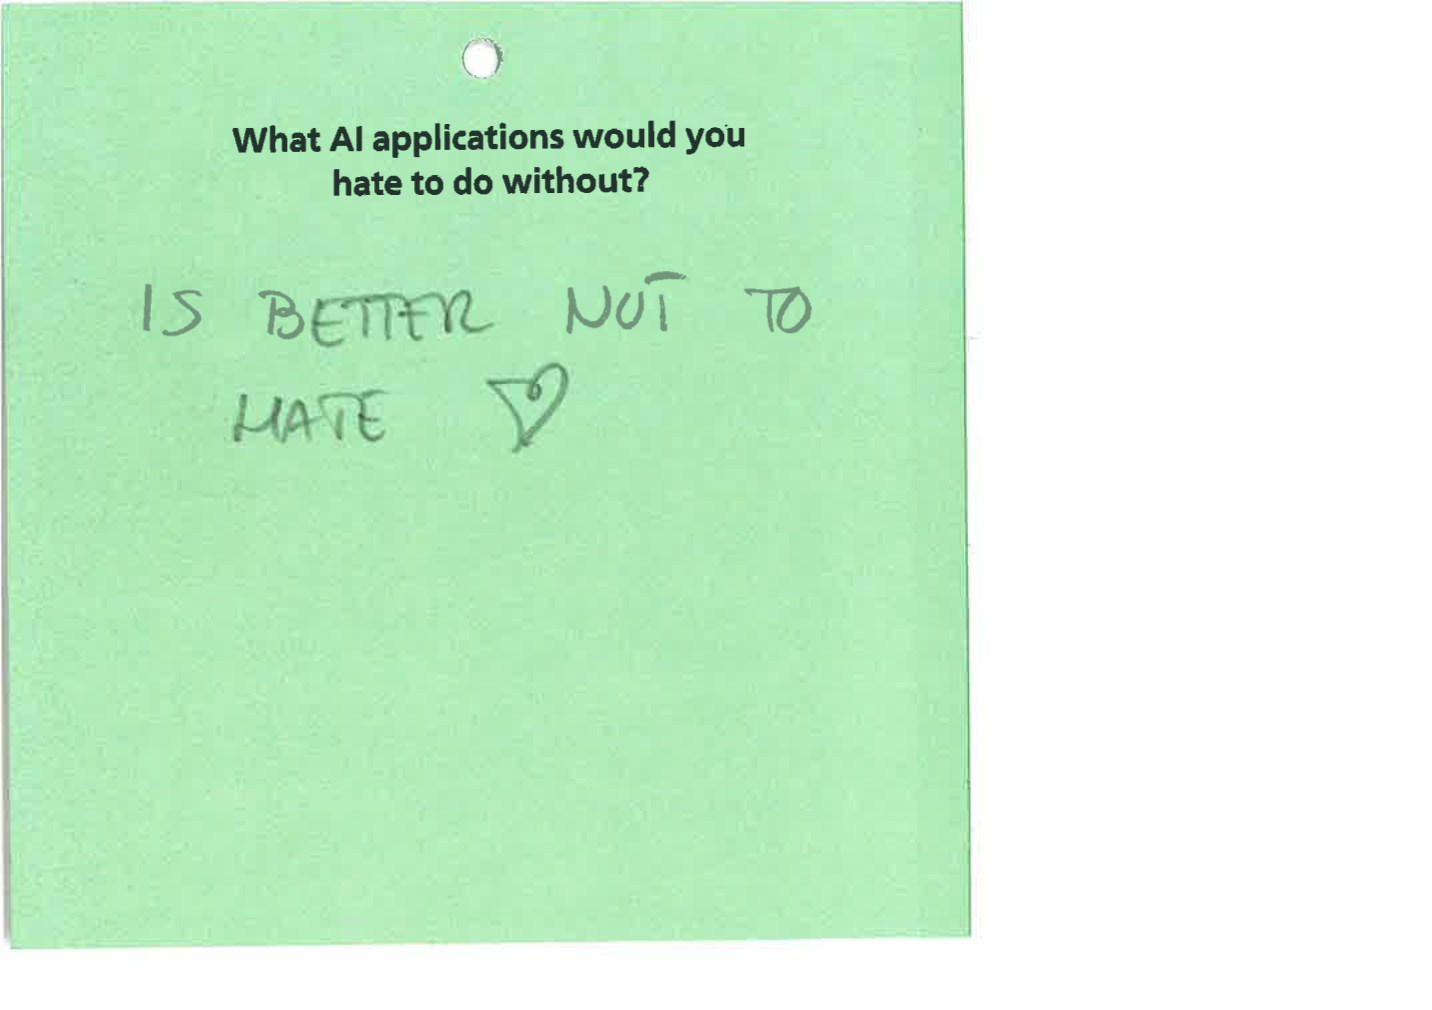 What AI applications would you
hate to do without?
IS BETTER NOT TO
HATE ♡